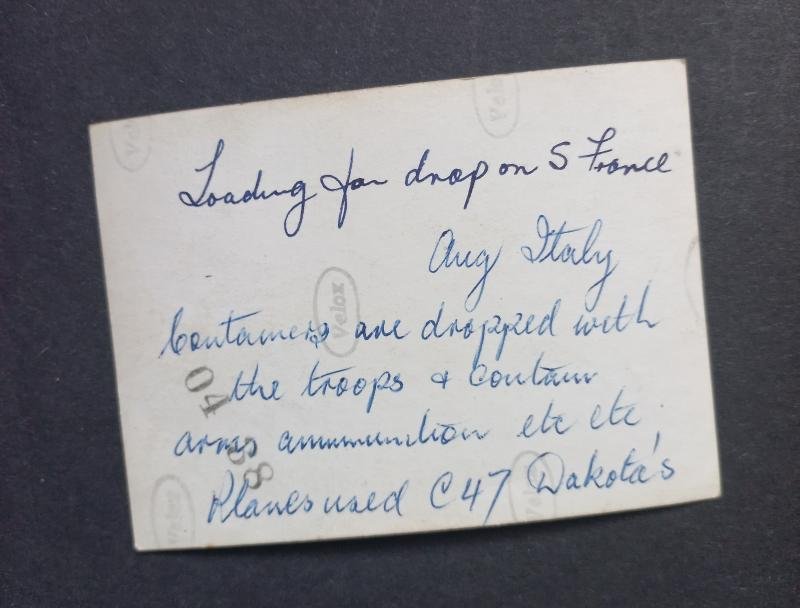 Velox
Velox
Loading for drop on S France
Aug Italy
Velox
Containers are dropped with
the troops & contain
04 58
arms ammunition etc etc.
Planes used C47 Dakota's
Velox
Velox